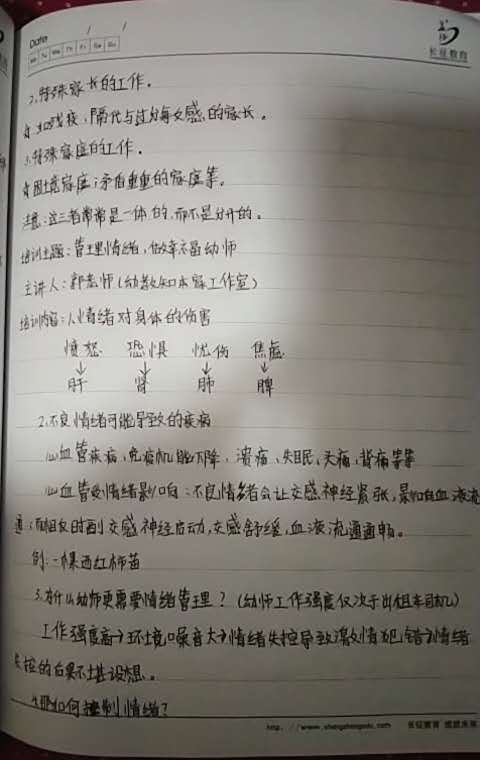 Date / /
Mo Tu We Th Fr Sa Su
长征教育
2.特殊家长的工作。
如残疾、隔代与过分每女感的家长。
3.特殊家庭的工作。
困境家庭;矛盾重重的家庭等。
注意:这三者常常是一体的,而不是分开的。
培训主题:管理情绪,做幸福幼师
主讲人:郭老师(幼教知本家工作室)
培训内容:1.情绪对身体的伤害
愤怒 恐惧 忧伤 焦虑
↓ ↓ ↓ ↓
肝 肾 肺 脾
2.不良情绪可能导致的疾病
心血管疾病,免疫机能下降,溃疡、失眠,头痛,背痛等等
心血管受情绪影响:不良情绪会让交感神经紧张,影响血液流
通;而相反时副交感神经启动,交感舒缓,血液流通通畅。
例:一棵西红柿苗
3.为什么幼师更需要情绪管理?(幼师工作强度仅次于出租车司机)
工作强度高→环境噪音大→情绪失控导致激情犯错→情绪
失控的后果不堪设想。
4.那如何控制情绪?
长征教育 成就未来